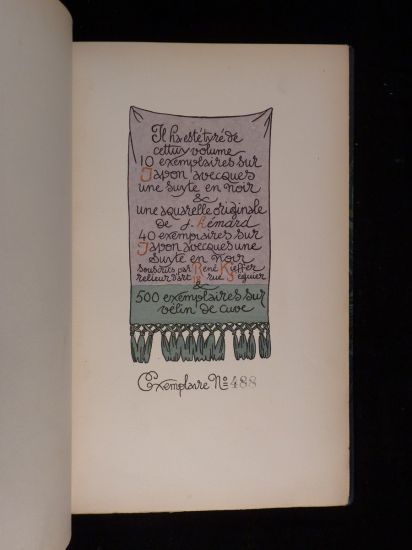 Il ha esté tyré de
cettuy volume
10 exemplaires sur
Japon avecques
une suyte en noir
&
une aquarelle originale
de J. Hémard
40 exemplaires sur
Japon avecques une
suyte en noir
souscrits par René Kieffer
relieur d'art 18 rue Séguier
&
500 exemplaires sur
vélin de cuve
Exemplaire No 488